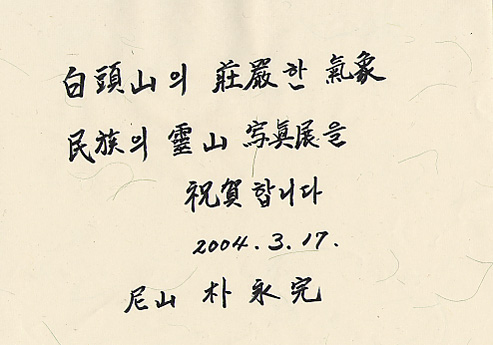 白頭山의 莊嚴한 氣象
民族의 靈山 写眞展을
祝賀합니다
2004. 3. 17.
尼山 朴永完